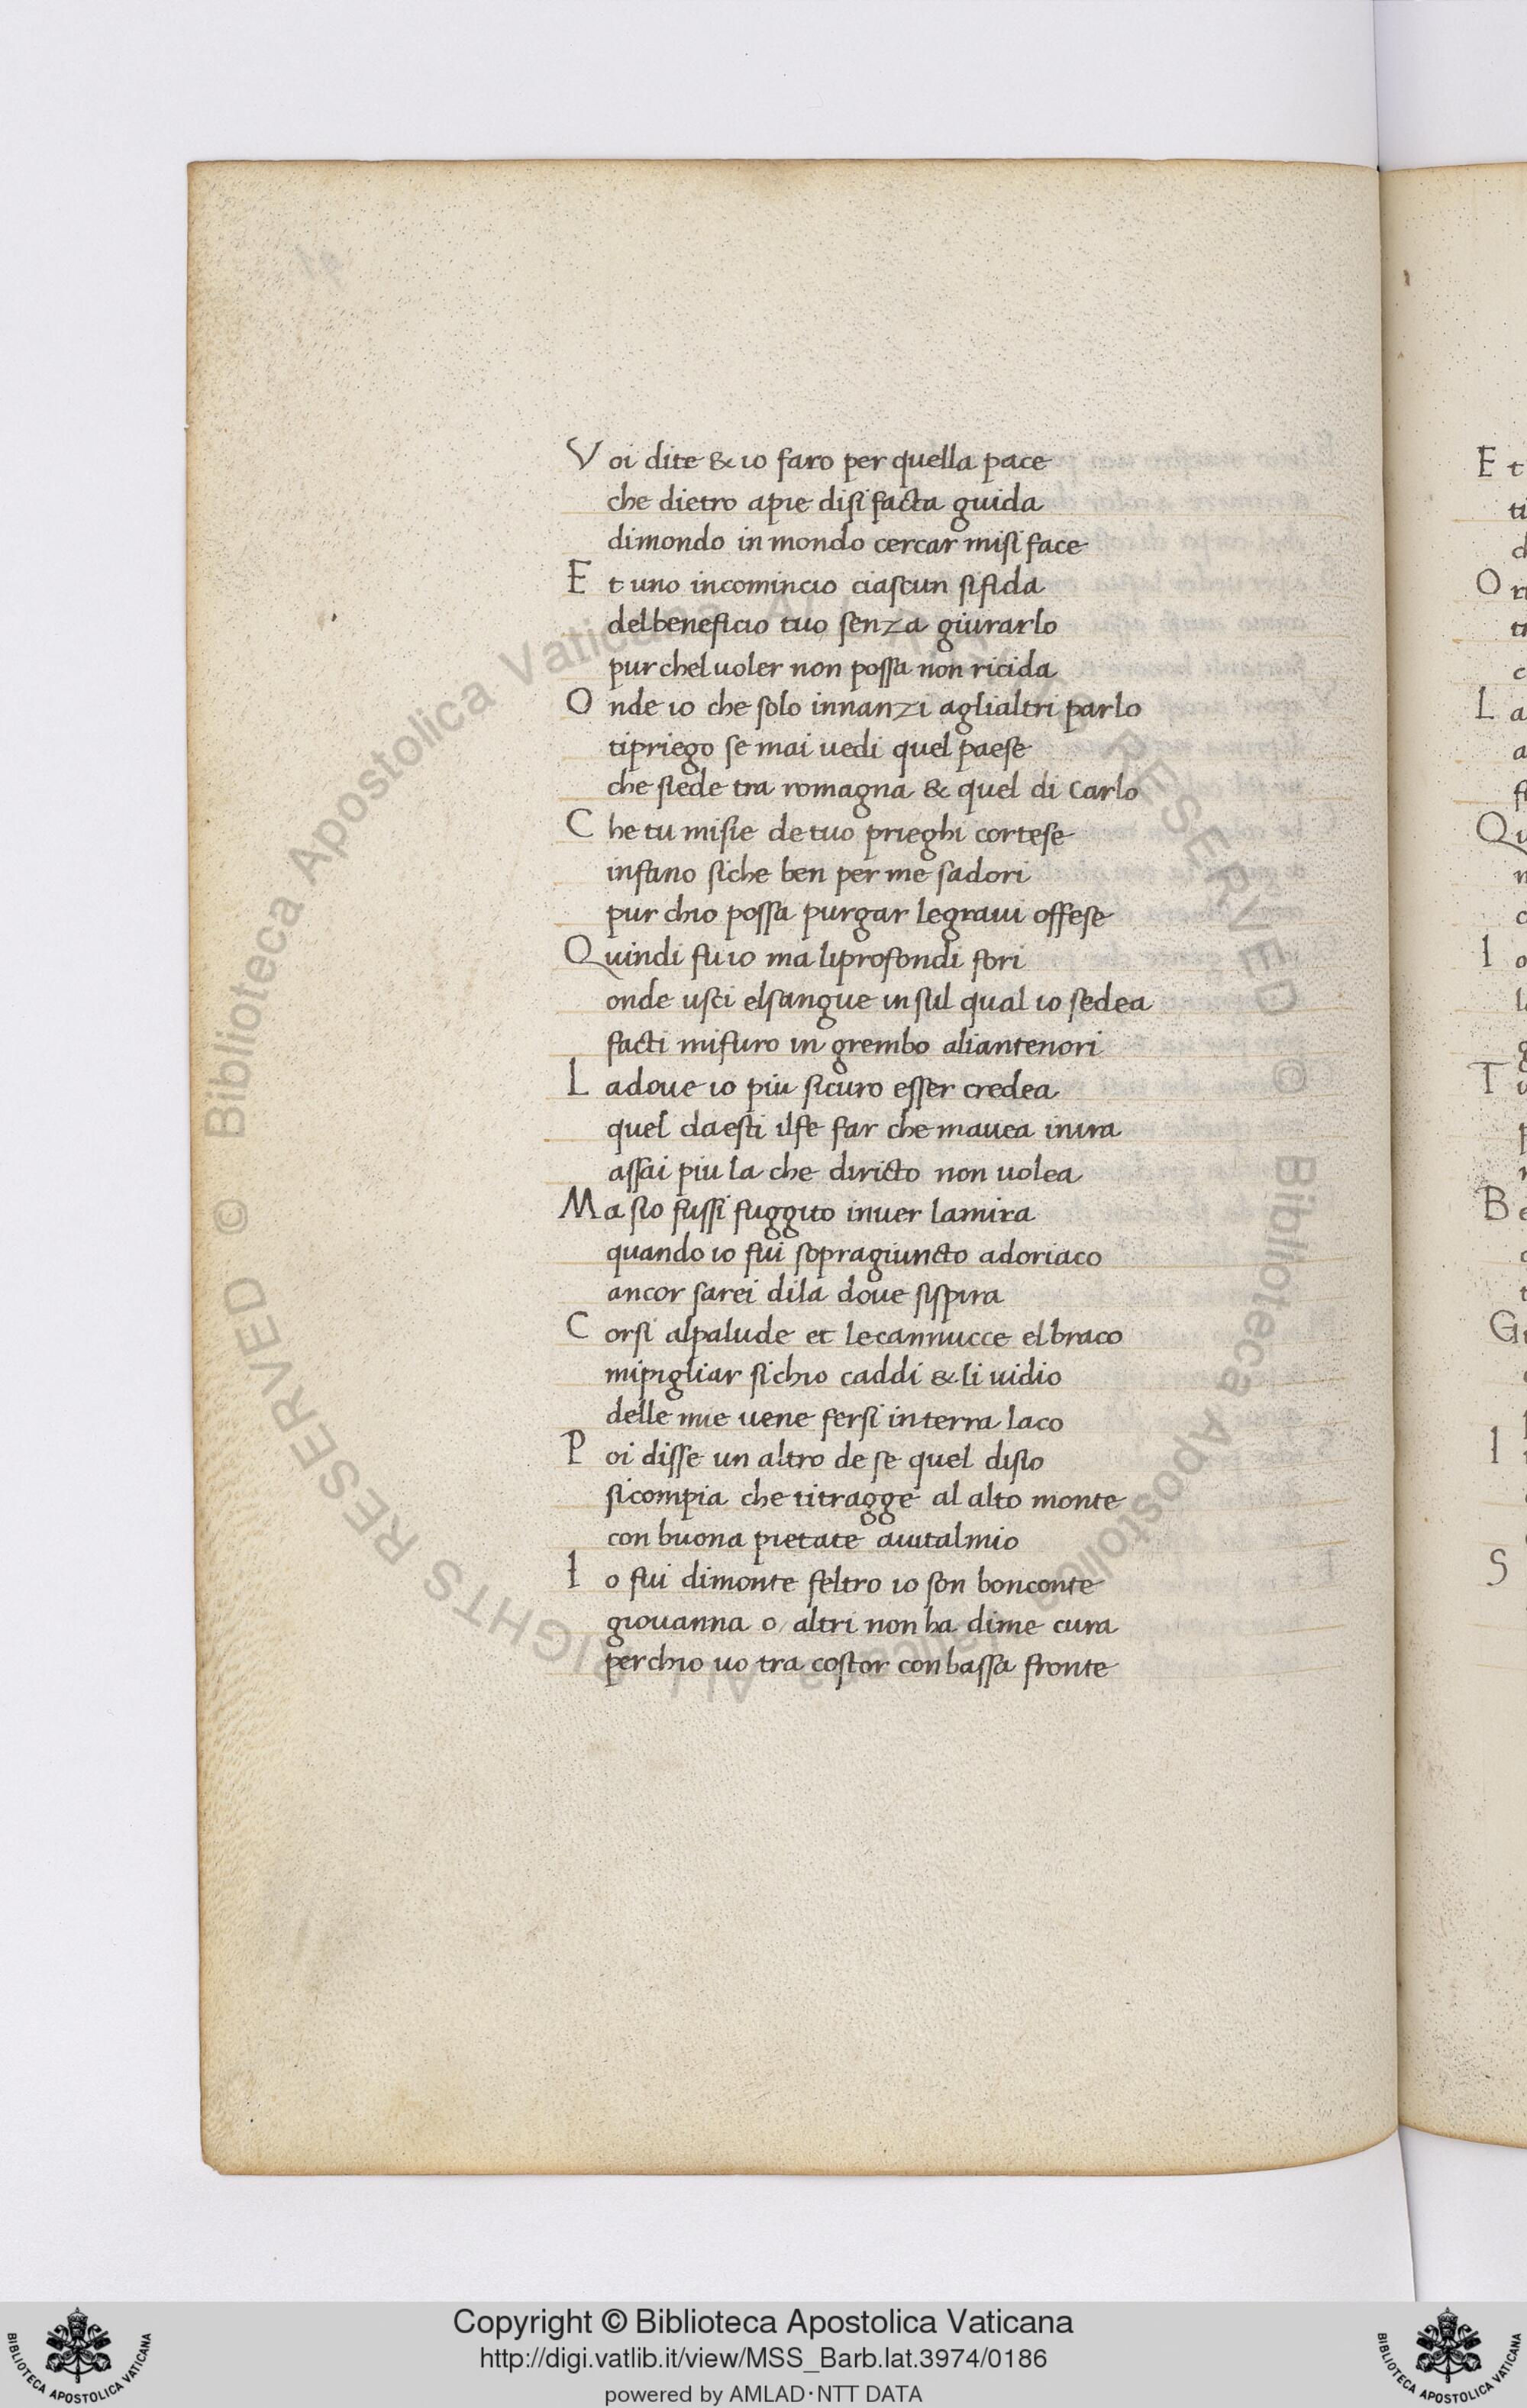 Voi dite & io faro per quella pace
che dietro apie disi facta guida
dimondo in mondo cercar misi face
Et uno incomincio ciascun sifida
delbeneficio tuo senza giurarlo
pur chel uoler non possa non ricida
Onde io che solo innanzi aglialtri parlo
tipriego se mai uedi quel paese
che siede tra romagna & quel di Carlo
Che tu misie de tuo prieghi cortese
infano siche ben per me sadori
pur chio possa purgar legraui offese
Quindi fu io ma liprofondi fori
onde usci elsangue in sul qual io sedea
facti mifuro in grembo aliantenori
Ladoue io piu sicuro esser credea
quel daesti ilfe far che mauea inira
assai piu la che diricto non uolea
Ma sio fussi fuggito inuer lamira
quando io fui sopragiuncto adoriaco
ancor sarei dila doue sispira
Corsi alpalude et lecannucce elbraco
mipigliar sichio caddi & li uidio
delle mie uene fersi interra laco
Poi disse un altro de se quel disio
sicompia che titragge al alto monte
con buona pietate aiutalmio
Io fui dimonte feltro io son bonconte
giouanna o altri non ha dime cura
perchio uo tra costor conbassa fronte
Copyright © Biblioteca Apostolica Vaticana
http://digi.vatlib.it/view/MSS_Barb.lat.3974/0186
powered by AMLAD·NTT DATA